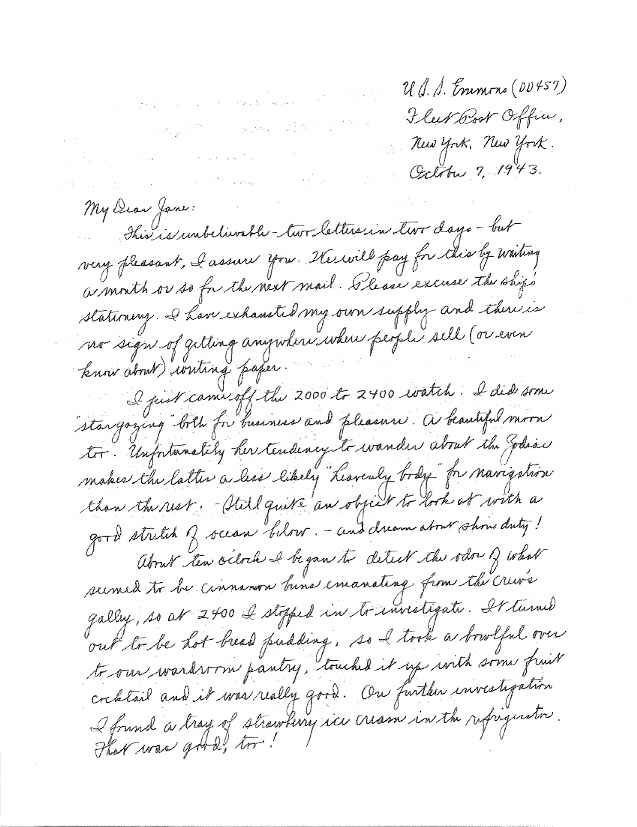 U.S.S. Emmons (DD457)
Fleet Post Office,
New York, New York.
October 7, 1943.
My Dear Jane:
This is unbelievable - two letters in two days - but
very pleasant, I assure you. We will pay for this by writing
a month or so for the next mail. Please excuse the ship's
stationery. I have exhausted my own supply and there is
no sign of getting anywhere where people sell (or even
know about) writing paper.
I just came off the 2000 to 2400 watch. I did some
"stargazing" both for business and pleasure. A beautiful moon
too. Unfortunately her tendency to wander about the Zodiac
makes the latter a less likely "heavenly body" for navigation
than the rest. - Still quite an object to look at with a
good stretch of ocean below. - and dream about shore duty!
About ten o'clock I began to detect the odor of what
seemed to be cinnamon buns emanating from the crew's
galley, so at 2400 I stopped in to investigate. It turned
out to be hot bread pudding, so I took a bowlful over
to our wardroom pantry, touched it up with some fruit
cocktail and it was really good. On further investigation
I found a tray of strawberry ice cream in the refrigerator.
That was good, too!